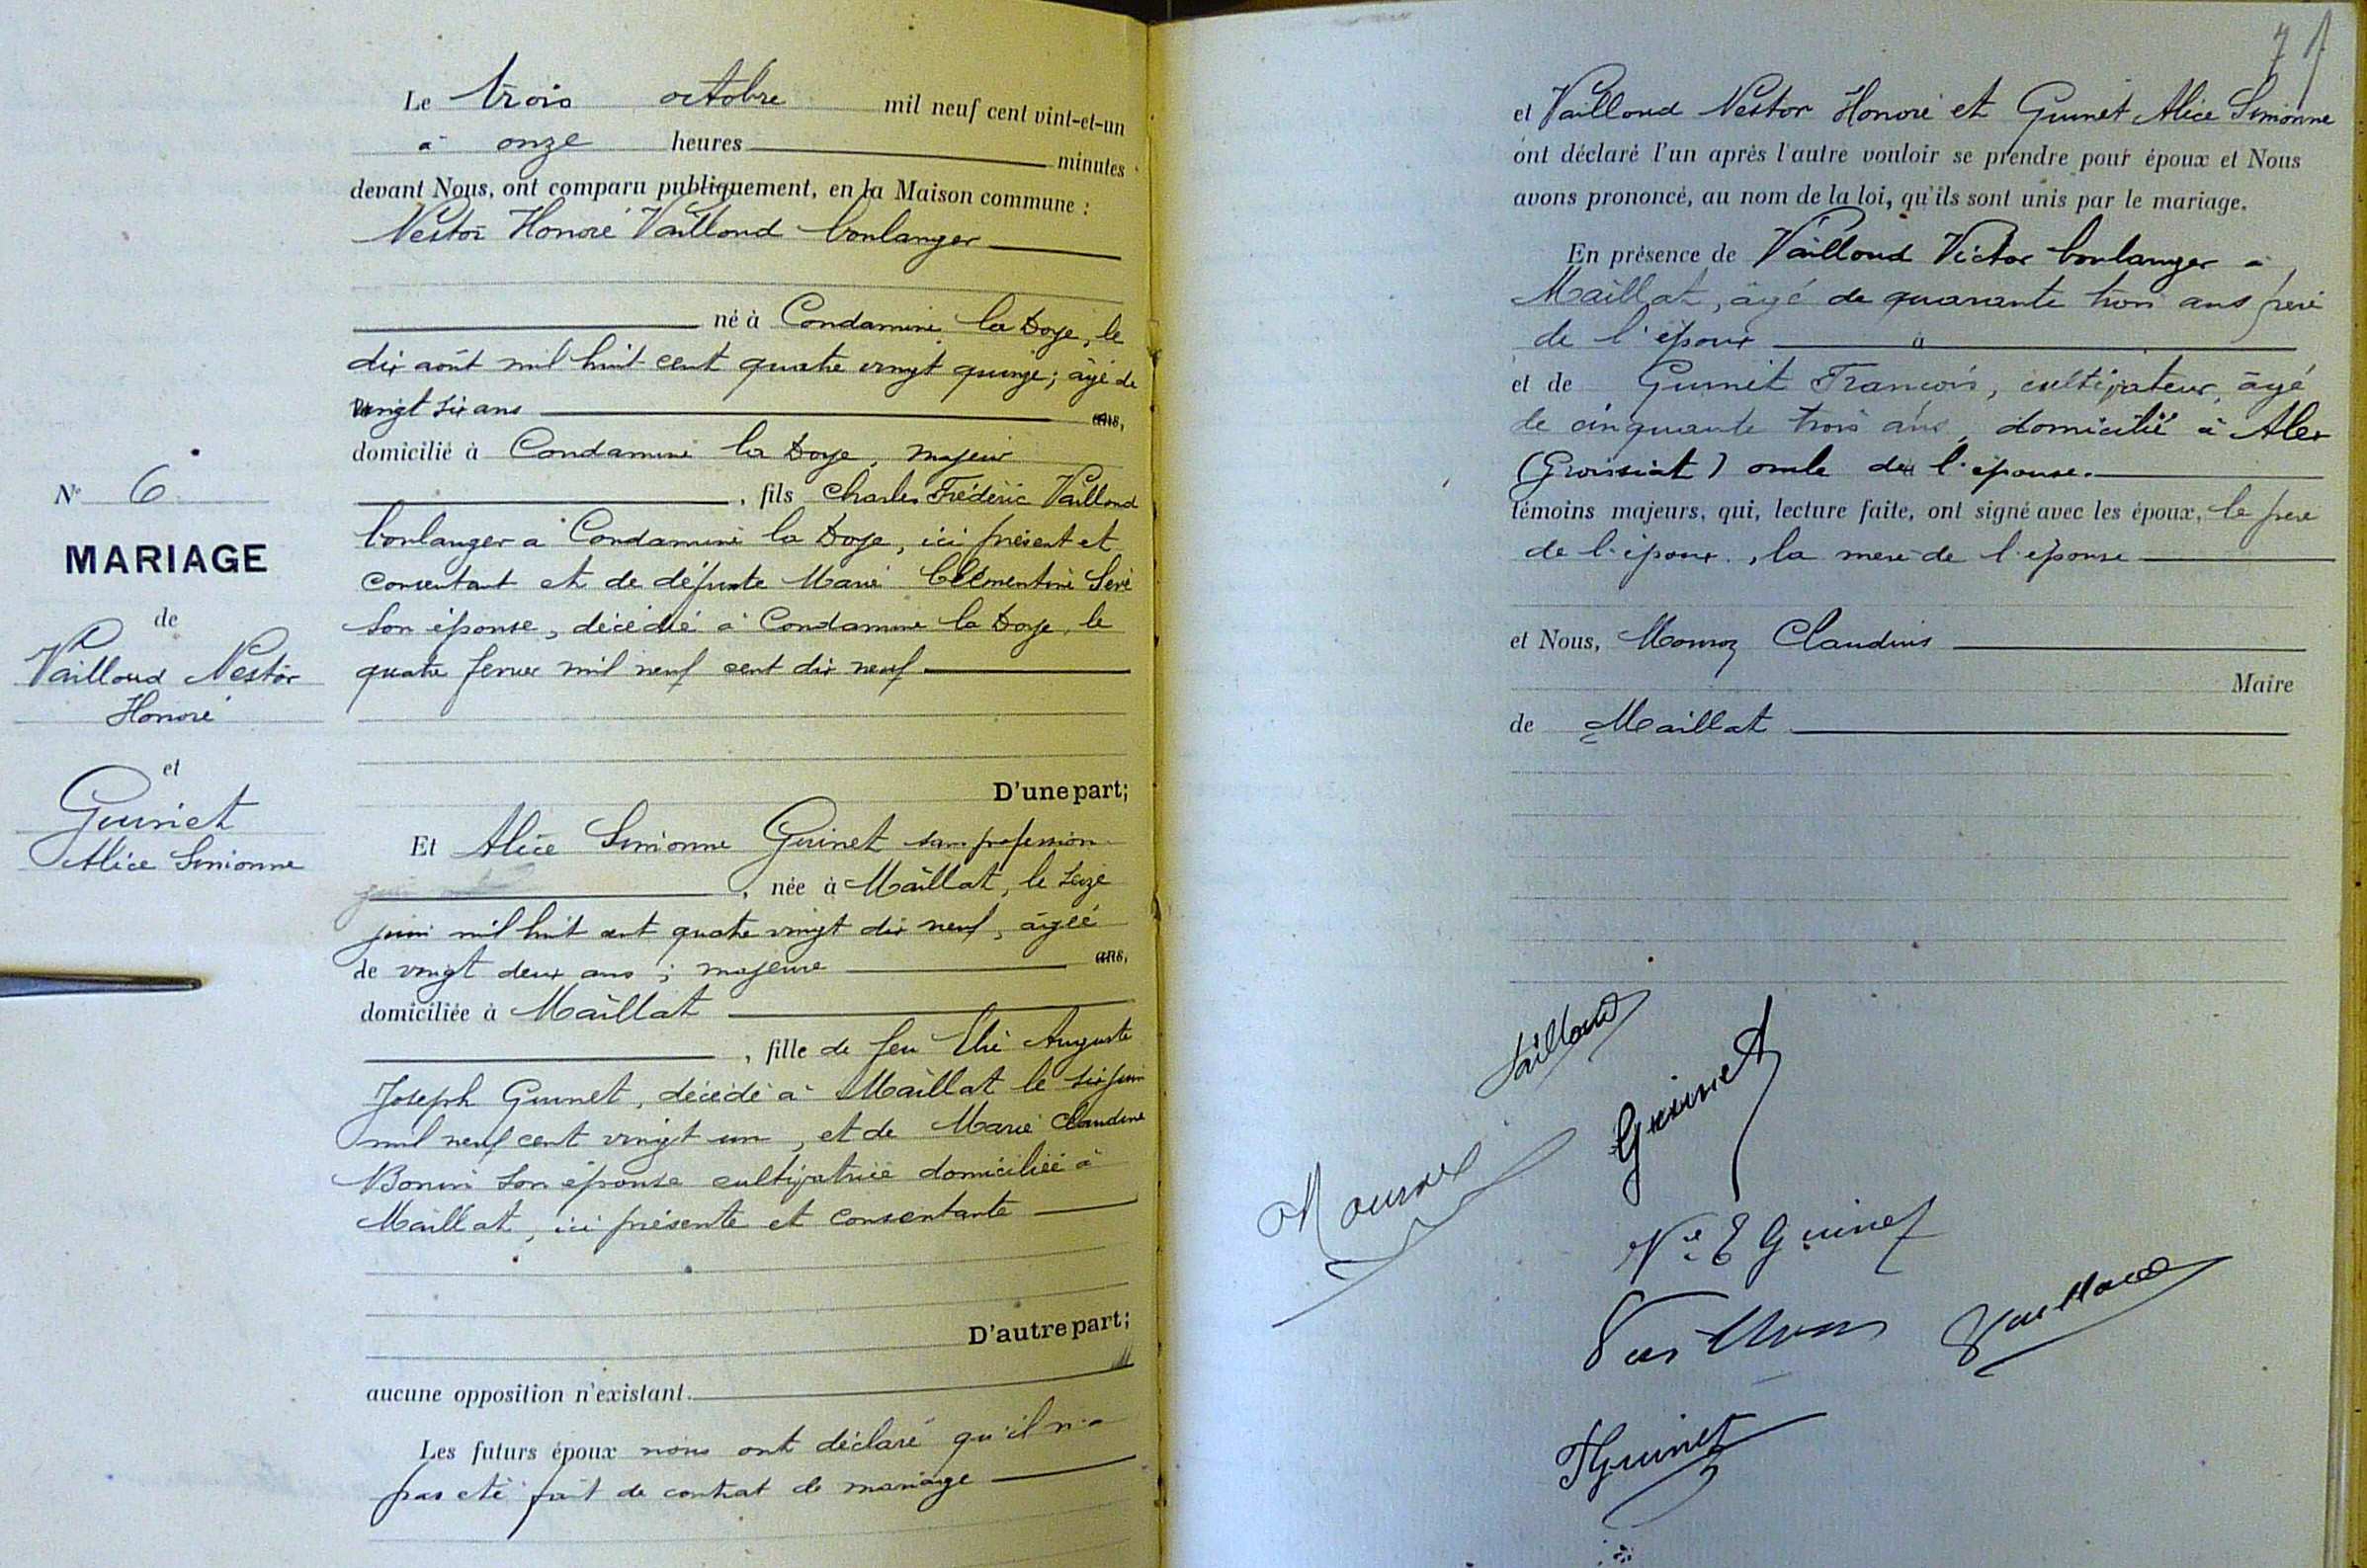 Le trois octobre mil neuf cent vint-et-un
à onze heures minutes
devant Nous, ont comparu publiquement, en la Maison commune :
Nestor Honoré Vailloud boulanger
né à Condamine la Doye, le
dix août mil huit cent quatre vingt quinze; âgé de
vingt six ans ans,
domicilié à Condamine la Doye, majeur
, fils Charles Frédéric Vailloud
boulanger à Condamine la Doye, ici présent et
consentant et de défunte Marie Clémentine
Son épouse, décédée à Condamine la Doye, le
quatre fevrier mil neuf cent dix neuf
D'une part;
N° 6
MARIAGE
de
Vailloud Nestor
Honoré
et
Guinet
Alice Simonne
Et Alice Simonne Guinet sans profession
, née à Maillat, le seize
juin mil huit cent quatre vingt dix neuf, âgée
de vingt deux ans ; majeure ans,
domiciliée à Maillat
, fille de feu Elie Auguste
Joseph Guinet, décédé à Maillat le six juin
mil neuf cent vingt un, et de Marie Claudine
son épouse cultivatrice domiciliée à
Maillat, ici présente et consentante
D'autre part;
aucune opposition n'existant.
Les futurs époux nous ont déclaré qu'il n'a
pas été fait de contrat de mariage
71
et Vailloud Nestor Honoré et Guinet Alice Simonne
ont déclaré l'un après l'autre vouloir se prendre pour époux et Nous
avons prononcé, au nom de la loi, qu'ils sont unis par le mariage.
En présence de Vailloud Victor boulanger à
Maillat, âgé de quarante trois ans
de l'époux à
et de Guinet François, cultivateur, âgé
de cinquante trois ans, domicilié à Alex
(Groissiat) oncle de l'épouse.
témoins majeurs, qui, lecture faite, ont signé avec les époux, le père
de l'époux, la mère de l'épouse
et Nous, Mournoz Claudius
Maire
de Maillat
Vailloud
Guinet
Mournoz
Vve E Guinet
Vailloud
Vailloud
F Guinet